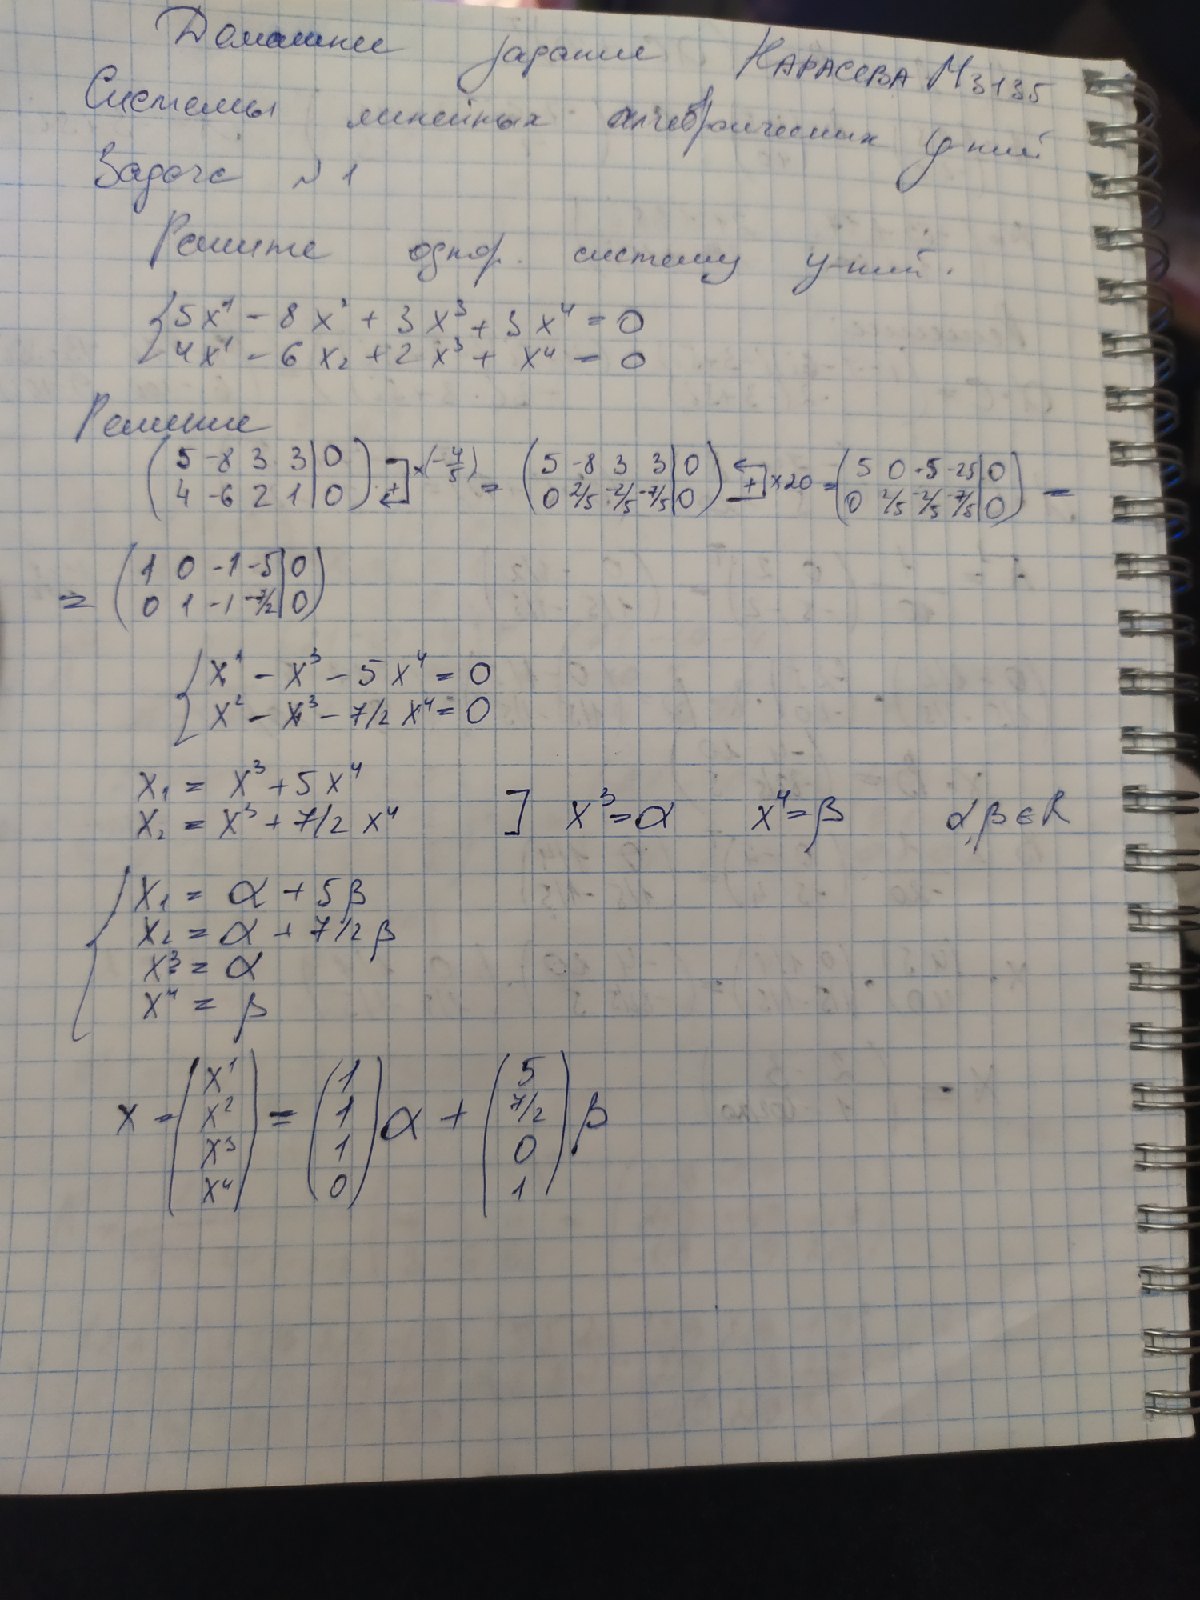 Домашнее задание КАРАСЕВА М3135
Системы линейных алгебраических у-ний
Задача №1
Решите однор. систему у-ний.
{5x¹ - 8x² + 3x³ + 3x⁴ = 0
4x¹ - 6x₂ + 2x³ + x⁴ = 0
Решение
(5 -8 3 3|0) ×(-4/5) = (5 -8 3 3|0) ×20 = (5 0 -5 -25|0) =
(4 -6 2 1|0) + (0 2/5 -2/5 -7/5|0) + (0 2/5 -2/5 -7/5|0)
= (1 0 -1 -5|0)
(0 1 -1 -7/2|0)
{x¹ - x³ - 5x⁴ = 0
x² - x³ - 7/2 x⁴ = 0
x₁ = x³ + 5x⁴
x₂ = x³ + 7/2 x⁴ ] x³ = α x⁴ = β α, β ∈ R
{x₁ = α + 5β
x₂ = α + 7/2 β
x³ = α
x⁴ = β
x = (x¹ x² x³ x⁴) = (1 1 1 0) α + (5 7/2 0 1) β